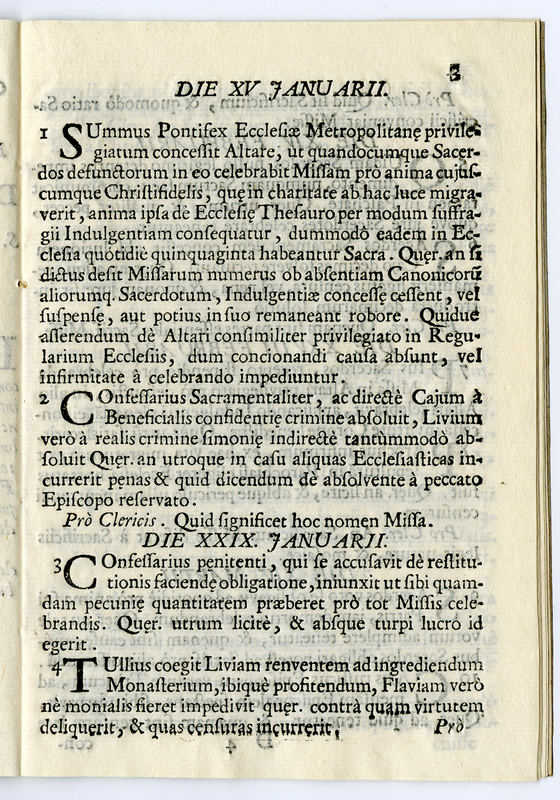 3
DIE XV JANUARII.
1 SUmmus Pontifex Ecclesiæ Metropolitanę privile-
giatum concessit Altare, ut quandocumque Sacer-
dos defunctorum in eo celebrabit Missam prò anima cujus-
cumque Christifidelis, quę in charitate ab hac luce migra-
verit, anima ipsa dè Ecclesię Thesauro per modum suffra-
gii Indulgentiam consequatur, dummodò eadem in Ec-
clesia quotidiè quinquaginta habeantur Sacra. Quęr. an si
dictus desit Missarum numerus ob absentiam Canonicorū
aliorumq. Sacerdotum, Indulgentiæ concessę cessent, vel
suspensę, aut potius in suo remaneant robore. Quidue
asserendum dè Altari consimiliter privilegiato in Regu-
larium Ecclesiis, dum concionandi causa absunt, vel
infirmitate à celebrando impediuntur.
2 COnfessarius Sacramentaliter, ac directè Cajum à
Beneficialis confidentię crimine absoluit, Livium
verò à realis crimine simonię indirectè tantùmmodò ab-
soluit Quęr. an utroque in casu aliquas Ecclesiasticas in-
currerit pęnas & quid dicendum dè absolvente à peccato
Episcopo reservato.
Prò Clericis. Quid significet hoc nomen Missa.
DIE XXIX. JANUARII.
3 COnfessarius pęnitenti, qui se accusavit dè restitu-
tionis faciendę obligatione, iniunxit ut sibi quam-
dam pecunię quantitatem præberet prò tot Missis cele-
brandis. Quęr. utrum licitè, & absque turpi lucro id
egerit.
4 TUllius coegit Liviam renventem ad ingrediendum
Monasterium, ibiquè profitendum, Flaviam verò
nè monialis fieret impedivit quęr. contrà quam virtutem
deliquerit, & quas censuras incurrerit.
Prò